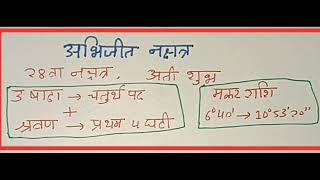 अभिजीत नक्षत्र
२८वा नक्षत्र, अती शुभ
उ षाढा → चतुर्थ पद
+
श्रवण → प्रथम ४ घटी
मकर राशि
6°40' → 10°53'20"